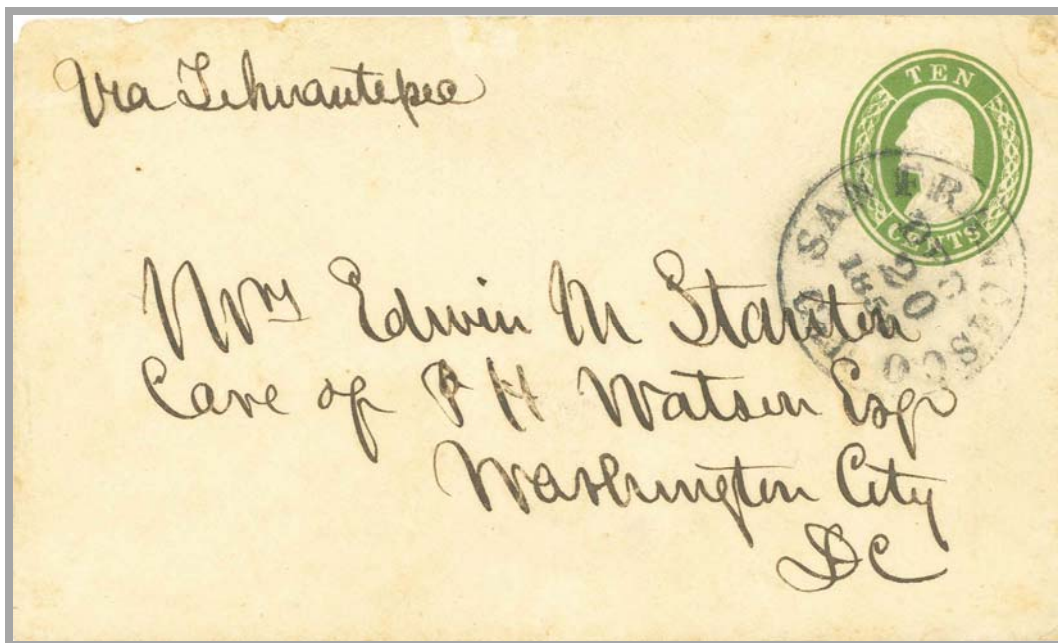 Via Tehuantepec
TEN
CENTS
SAN FRANCISCO CAL
DEC
20
Mrs Edwin M Stanton
Care of P H Watson Esqr
Washington City
DC